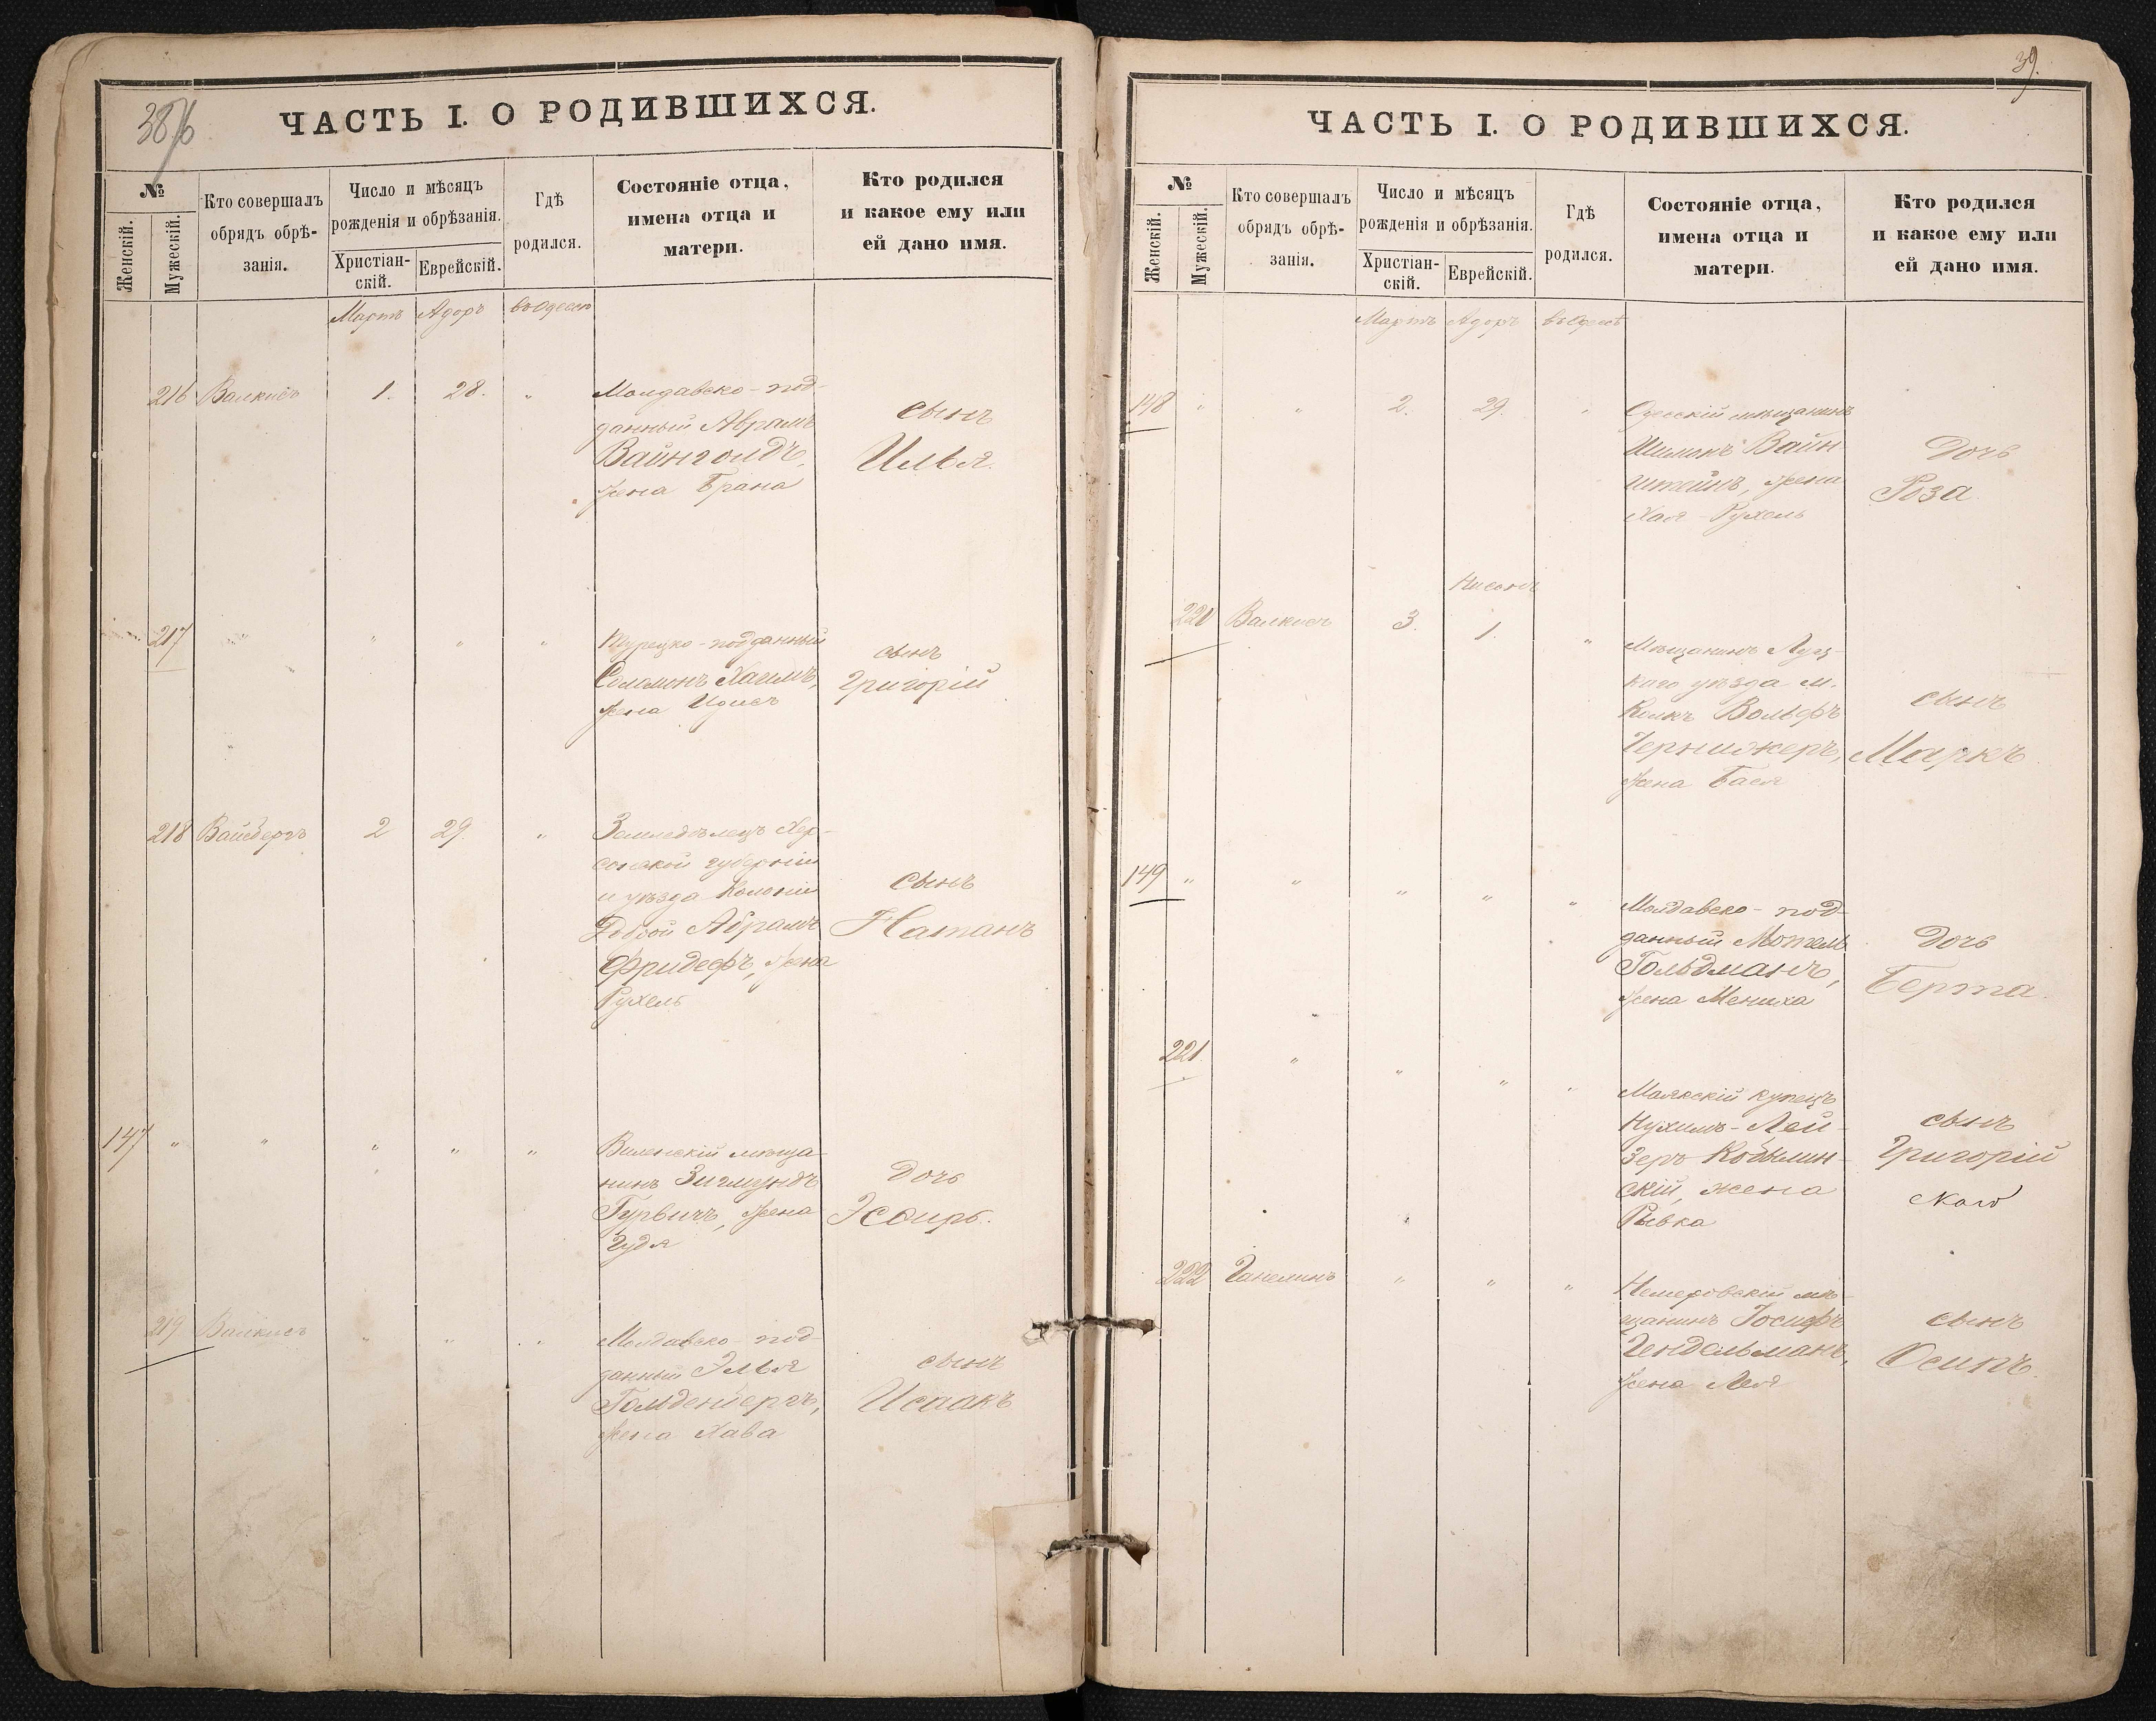 38/б
ЧАСТЬ I. О РОДИВШИХСЯ.
№
Женскій.
Мужескій.
Кто совершалъ
обрядъ обрѣ-
занія.
Число и мѣсяцъ
рожденія и обрѣзанія.
Христіан-
скій.
Еврейскій.
Гдѣ
родился.
Состояніе отца,
имена отца и
матери.
Кто родился
и какое ему или
ей дано имя.
Мартъ Адоръ въ Одессѣ
216 Валкисъ 1. 28. "
Молдавско-под-
данный Абрамъ
Вайнголдъ,
жена Брана
сынъ
Илья.
217 " " " "
Турецко-подданный
Соломонъ Хаимъ,
жена
сынъ
Григорій
218 Вайсбергъ 2 29 "
Земледѣлецъ Хер-
сонской губерніи
и уѣзда Колоніи
Доброй Абрамъ
Фридефъ, жена
Рухель
сынъ
Натанъ
147 " " " " "
Виленскій мѣща-
нинъ Зигмундъ
Гурвичъ, жена
Гудя
дочь
Эсѳирь.
219 Валкисъ " " "
Молдавско-под-
данный Элья
Гольденбергъ,
жена Хава
сынъ
Исаакъ
39.
ЧАСТЬ I. О РОДИВШИХСЯ.
№
Женскій.
Мужескій.
Кто совершалъ
обрядъ обрѣ-
занія.
Число и мѣсяцъ
рожденія и обрѣзанія.
Христіан-
скій.
Еврейскій.
Гдѣ
родился.
Состояніе отца,
имена отца и
матери.
Кто родился
и какое ему или
ей дано имя.
Мартъ Адоръ въ Одессѣ
148 " " 2. 29. "
Одесскій мѣщанинъ
Шимонъ Вайн-
штейнъ, жена
Хая-Рухель
Дочь
Роза
Нисонъ
220 Валкисъ 3. 1. "
Мѣщанинъ Луц-
каго уѣзда м.
Колкъ Вольфъ
жена Бася
сынъ
Маркъ
149 " " " " "
Молдавско-под-
данный Мотель
Гольдманъ,
жена Мениха
Дочь
Берта.
221. " " " "
Маякскій купецъ
Нухимъ-Лей-
зеръ Кобылин-
скій, жена
Рывка
сынъ
Григорій
222 Ганелинъ " " "
Немеровскій мѣ-
щанинъ Іосифъ
Гендельманъ,
жена Лея
сынъ
Осипъ.